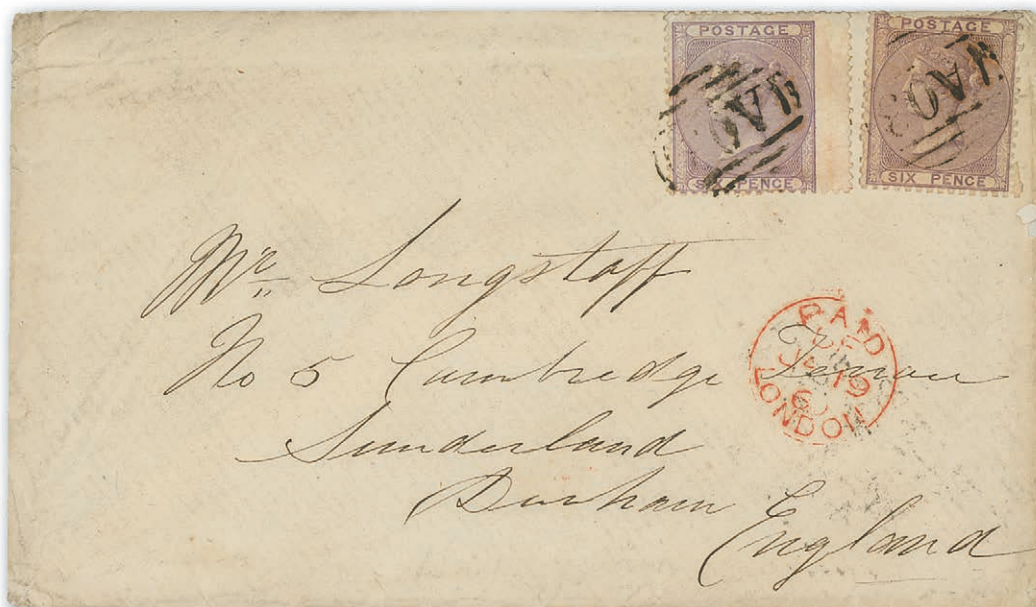 POSTAGE
SIX PENCE
POSTAGE
SIX PENCE
Mr Longstaff
No 5 Cambridge Terrace
Sunderland
Durham
England
PAID
19
LONDON